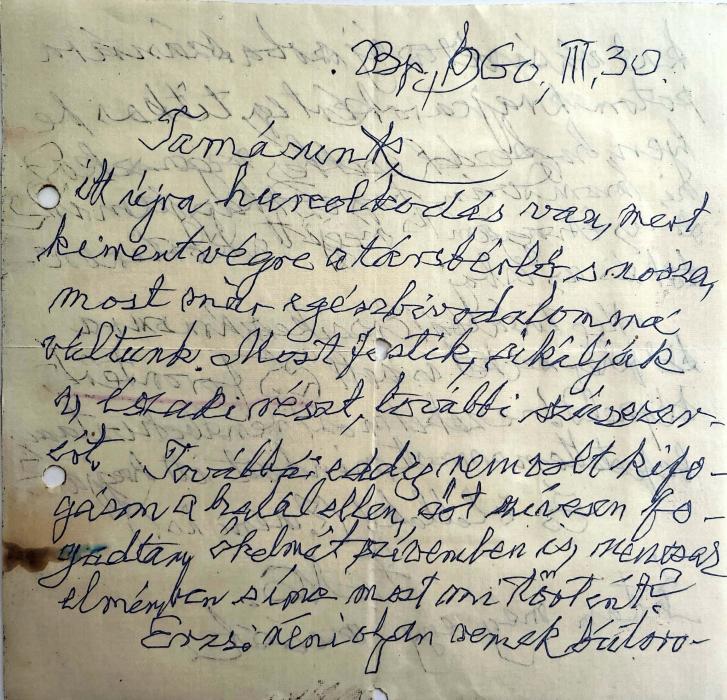 Bp, 960, III, 30.
Tamásunk
itt újra hurcolkodás van, mert
kiment végre a társbérlő, s nosza,
most már egész birodalommá
váltunk. Most festik, sikálják
az északi részt, további százezer-
ért. További: eddig nem volt kifo-
gásom a halál ellen, sőt szívesen fo-
gadtam őkelmét szívemben is, nemcsak
elmémben s íme most mi történt?
Erzsi néni olyan remek bútoro-